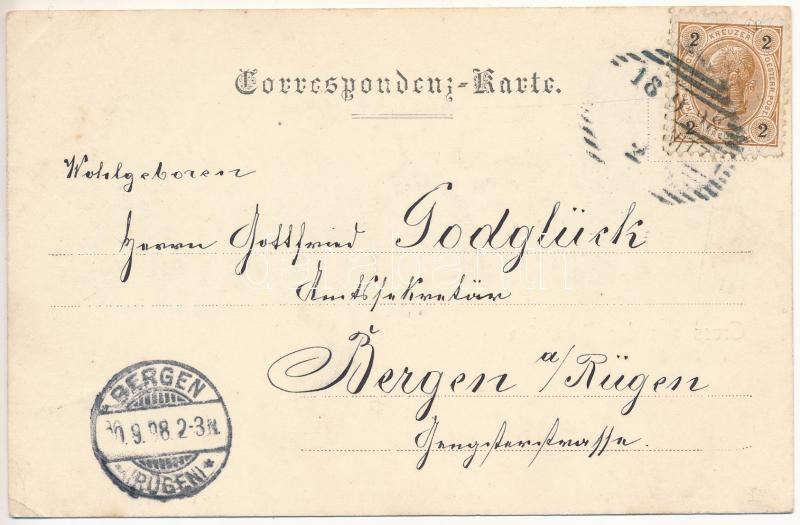 Correspondenz-Karte.
2 KREUZER 2
OESTERR. POST
2 2
18
Wohlgeboren
Herrn Gottfried Godglück
darabanth
Amtssekretär
Bergen a/Rügen
Gengsterstrasse.
BERGEN
9.98.2-3N.
(RÜGEN)